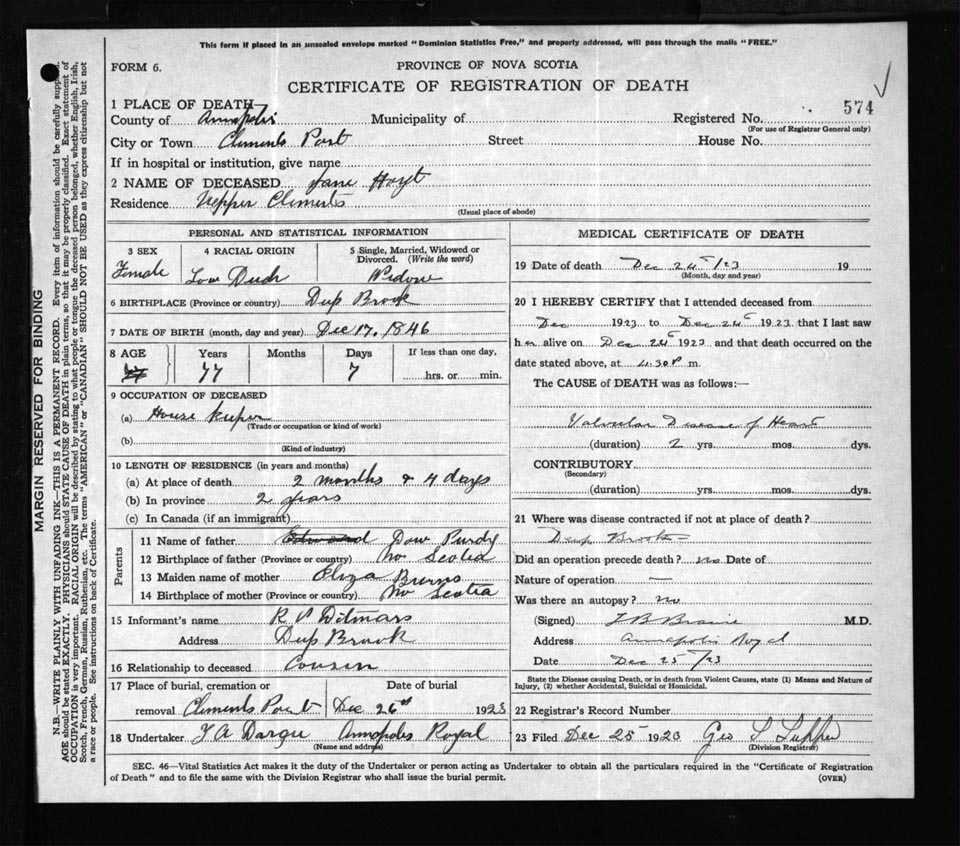 This form if placed in an unsealed envelope marked "Dominion Statistics Free," and properly addressed, will pass through the mails "FREE."
FORM 6.
PROVINCE OF NOVA SCOTIA
CERTIFICATE OF REGISTRATION OF DEATH
1 PLACE OF DEATH
574
County of Annapolis Municipality of Registered No.
(For use of Registrar General only)
City or Town Clements Port Street House No.
If in hospital or institution, give name
2 NAME OF DECEASED Jane Hoyt
Residence Uepper Clements
(Usual place of abode)
PERSONAL AND STATISTICAL INFORMATION
3 SEX 4 RACIAL ORIGIN 5 Single, Married, Widowed or Divorced. (Write the word)
Female Low Duch Widow
6 BIRTHPLACE (Province or country) Dep Brook
7 DATE OF BIRTH (month, day and year) Dec 17, 1846
8 AGE Years Months Days If less than one day,
77 77 7 hrs. or min.
9 OCCUPATION OF DECEASED
(a) House keeper
(Trade or occupation or kind of work)
(b)
(Kind of industry)
10 LENGTH OF RESIDENCE (in years and months)
(a) At place of death 2 months & 4 days
(b) In province 2 years
(c) In Canada (if an immigrant)
Parents
11 Name of father Edward Dow Purdy
12 Birthplace of father (Province or country) No Scotia
13 Maiden name of mother Eliza Burns
14 Birthplace of mother (Province or country) No Scotia
15 Informant's name R V Ditmars
Address Dep Brook
16 Relationship to deceased Cousin
17 Place of burial, cremation or removal Clements Port Date of burial Dec 26th 1923
18 Undertaker T A Dargie Annapolis Royal
(Name and address)
MEDICAL CERTIFICATE OF DEATH
19 Date of death Dec 24th/23 19
(Month, day and year)
20 I HEREBY CERTIFY that I attended deceased from
Dec 1923 to Dec 24th 1923 that I last saw
her alive on Dec 24th 1923 and that death occurred on the
date stated above, at 4.30 P m.
The CAUSE of DEATH was as follows:—
Valvular Disease of Heart
(duration) 2 yrs. mos. dys.
CONTRIBUTORY
(Secondary)
(duration) yrs. mos. dys.
21 Where was disease contracted if not at place of death?
Deep Brook
Did an operation precede death? no Date of
Nature of operation —
Was there an autopsy? no
(Signed) L B Braine M.D.
Address Annapolis Royal
Date Dec 25th/23
State the Disease causing Death, or in death from Violent Causes, state (1) Means and Nature of Injury, (2) whether Accidental, Suicidal or Homicidal.
22 Registrar's Record Number
23 Filed Dec 25 1923 Geo L Tupper
(Division Registrar)
SEC. 46—Vital Statistics Act makes it the duty of the Undertaker or person acting as Undertaker to obtain all the particulars required in the "Certificate of Registration
of Death" and to file the same with the Division Registrar who shall issue the burial permit.
(OVER)
MARGIN RESERVED FOR BINDING
N.B.—WRITE PLAINLY WITH UNFADING INK—THIS IS A PERMANENT RECORD. Every item of information should be carefully supplied.
AGE should be stated EXACTLY. PHYSICIANS should STATE CAUSE OF DEATH in plain terms, so that it may be properly classified. Exact statement of
OCCUPATION is very important. RACIAL ORIGIN will be described by stating to what people or tongue the deceased person belonged, whether English, Irish,
Scotch, French, German, Russian, Ruthenian, etc. The terms "AMERICAN" or "CANADIAN" SHOULD NOT BE USED as they express citizenship but not
a race or people. See instructions on back of Certificate.